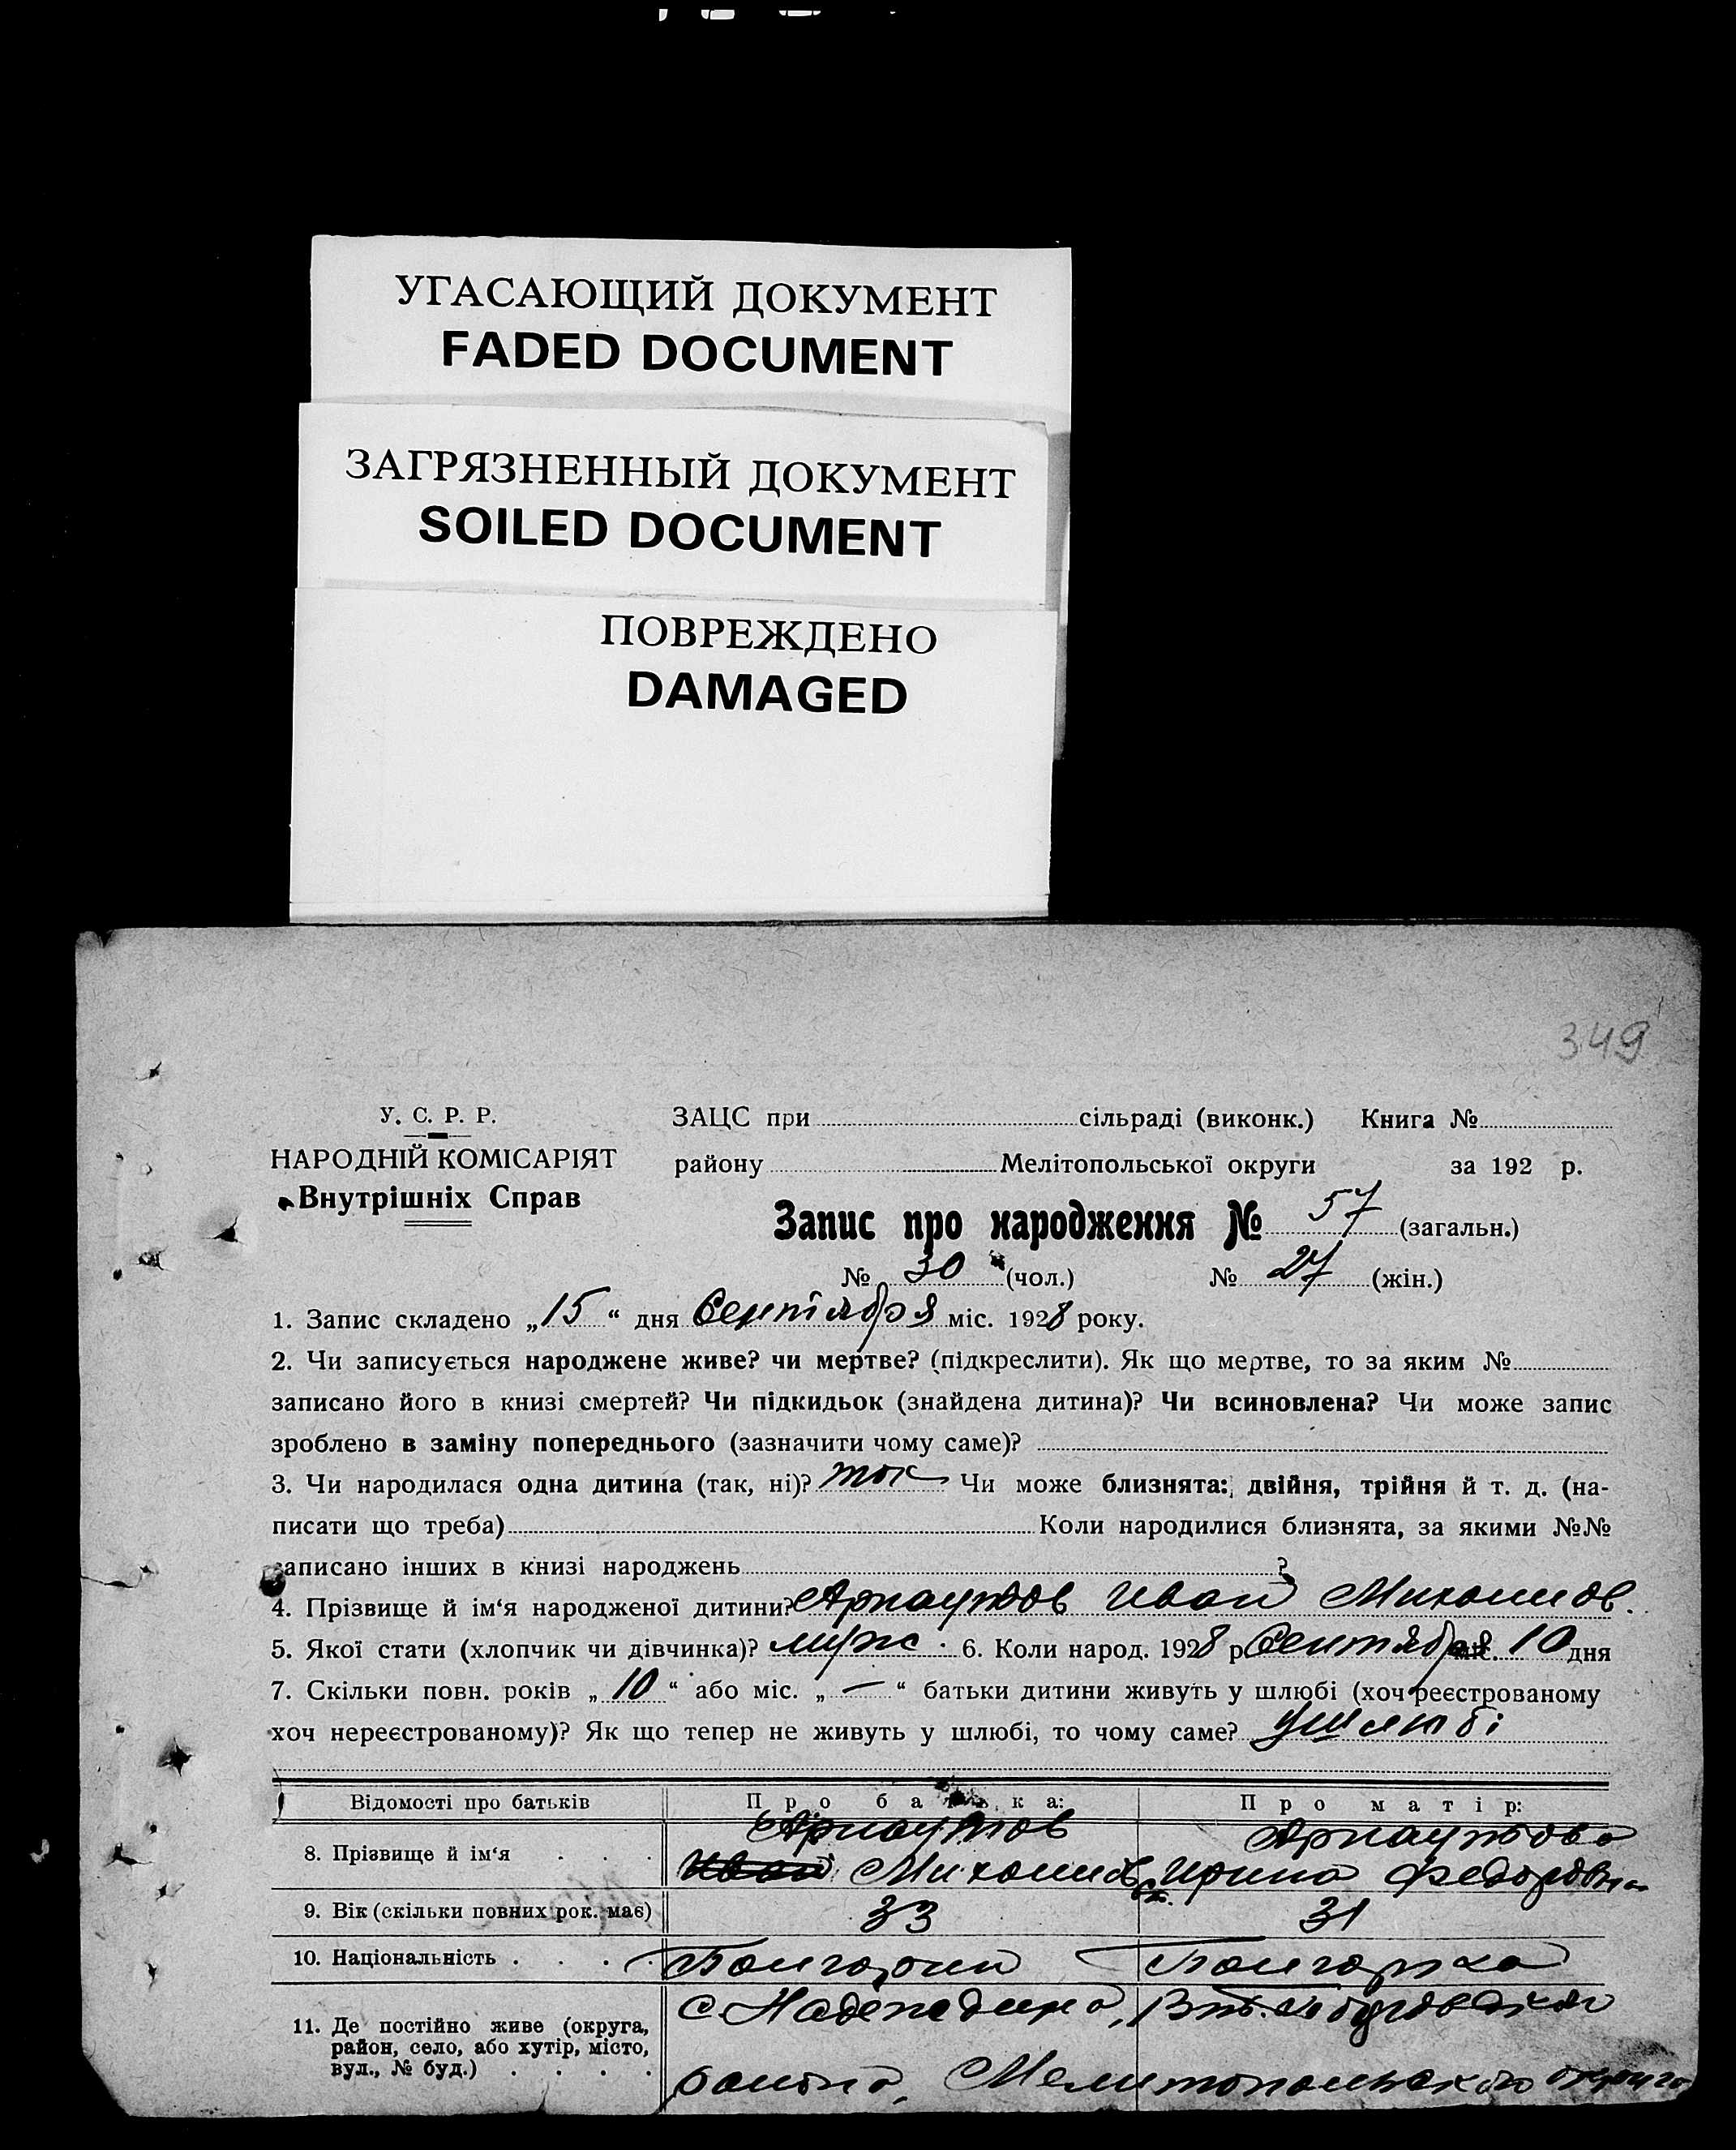 УГАСАЮЩИЙ ДОКУМЕНТ
FADED DOCUMENT
ЗАГРЯЗНЕННЫЙ ДОКУМЕНТ
SOILED DOCUMENT
ПОВРЕЖДЕНО
DAMAGED
349
У. С. Р. Р.
НАРОДНІЙ КОМІСАРІЯТ
Внутрішніх Справ
ЗАЦС при сільраді (виконк.) Книга №
району Мелітопольської округи за 192 р.
Запис про народження № 57 (загальн.)
№ 30 (чол.) № 27 (жін.)
1. Запис складено „15“ дня Сентября міс. 1928 року.
2. Чи записується народжене живе? чи мертве? (підкреслити). Як що мертве, то за яким №
записано його в книзі смертей? Чи підкидьок (знайдена дитина)? Чи всиновлена? Чи може запис
зроблено в заміну попереднього (зазначити чому саме)?
3. Чи народилася одна дитина (так, ні)? так Чи може близнята: двійня, трійня й т. д. (на-
писати що треба) Коли народилися близнята, за якими №№
записано інших в книзі народжень ?
4. Прізвище й ім‘я народженої дитини? Арнаутов Иван Михаилов.
5. Якої стати (хлопчик чи дівчинка)? муж. 6. Коли народ. 1928 р. Сентября міс. 10 дня
7. Скільки повн. років „10“ або міс. „—“ батьки дитини живуть у шлюбі (хоч реєстрованому
хоч нереєстрованому)? Як що тепер не живуть у шлюбі, то чому саме? у шлюбі
Відомості про батьків Про батька: Про матір:
8. Прізвище й ім‘я . . . Арнаутов Михаил Арнаутова Ирина Федоровна
9. Вік (скільки повних рок. має) 33 31
10. Національність . . . . Болгарин Болгарка
11. Де постійно живе (округа,
район, село, або хутір, місто,
вул., № буд.) . . . .
с. Надеждина,
района, Мелитопольского округа